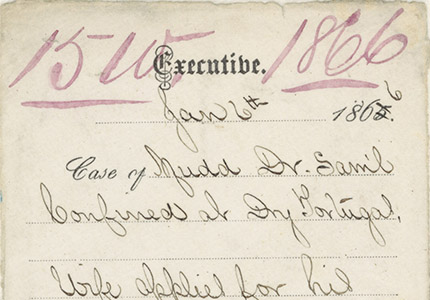 15 W 1866
Executive.
Jan 6th 1866.
Case of Mudd Dr. Saml
Confined at Dry Tortugas,
Wife applies for his